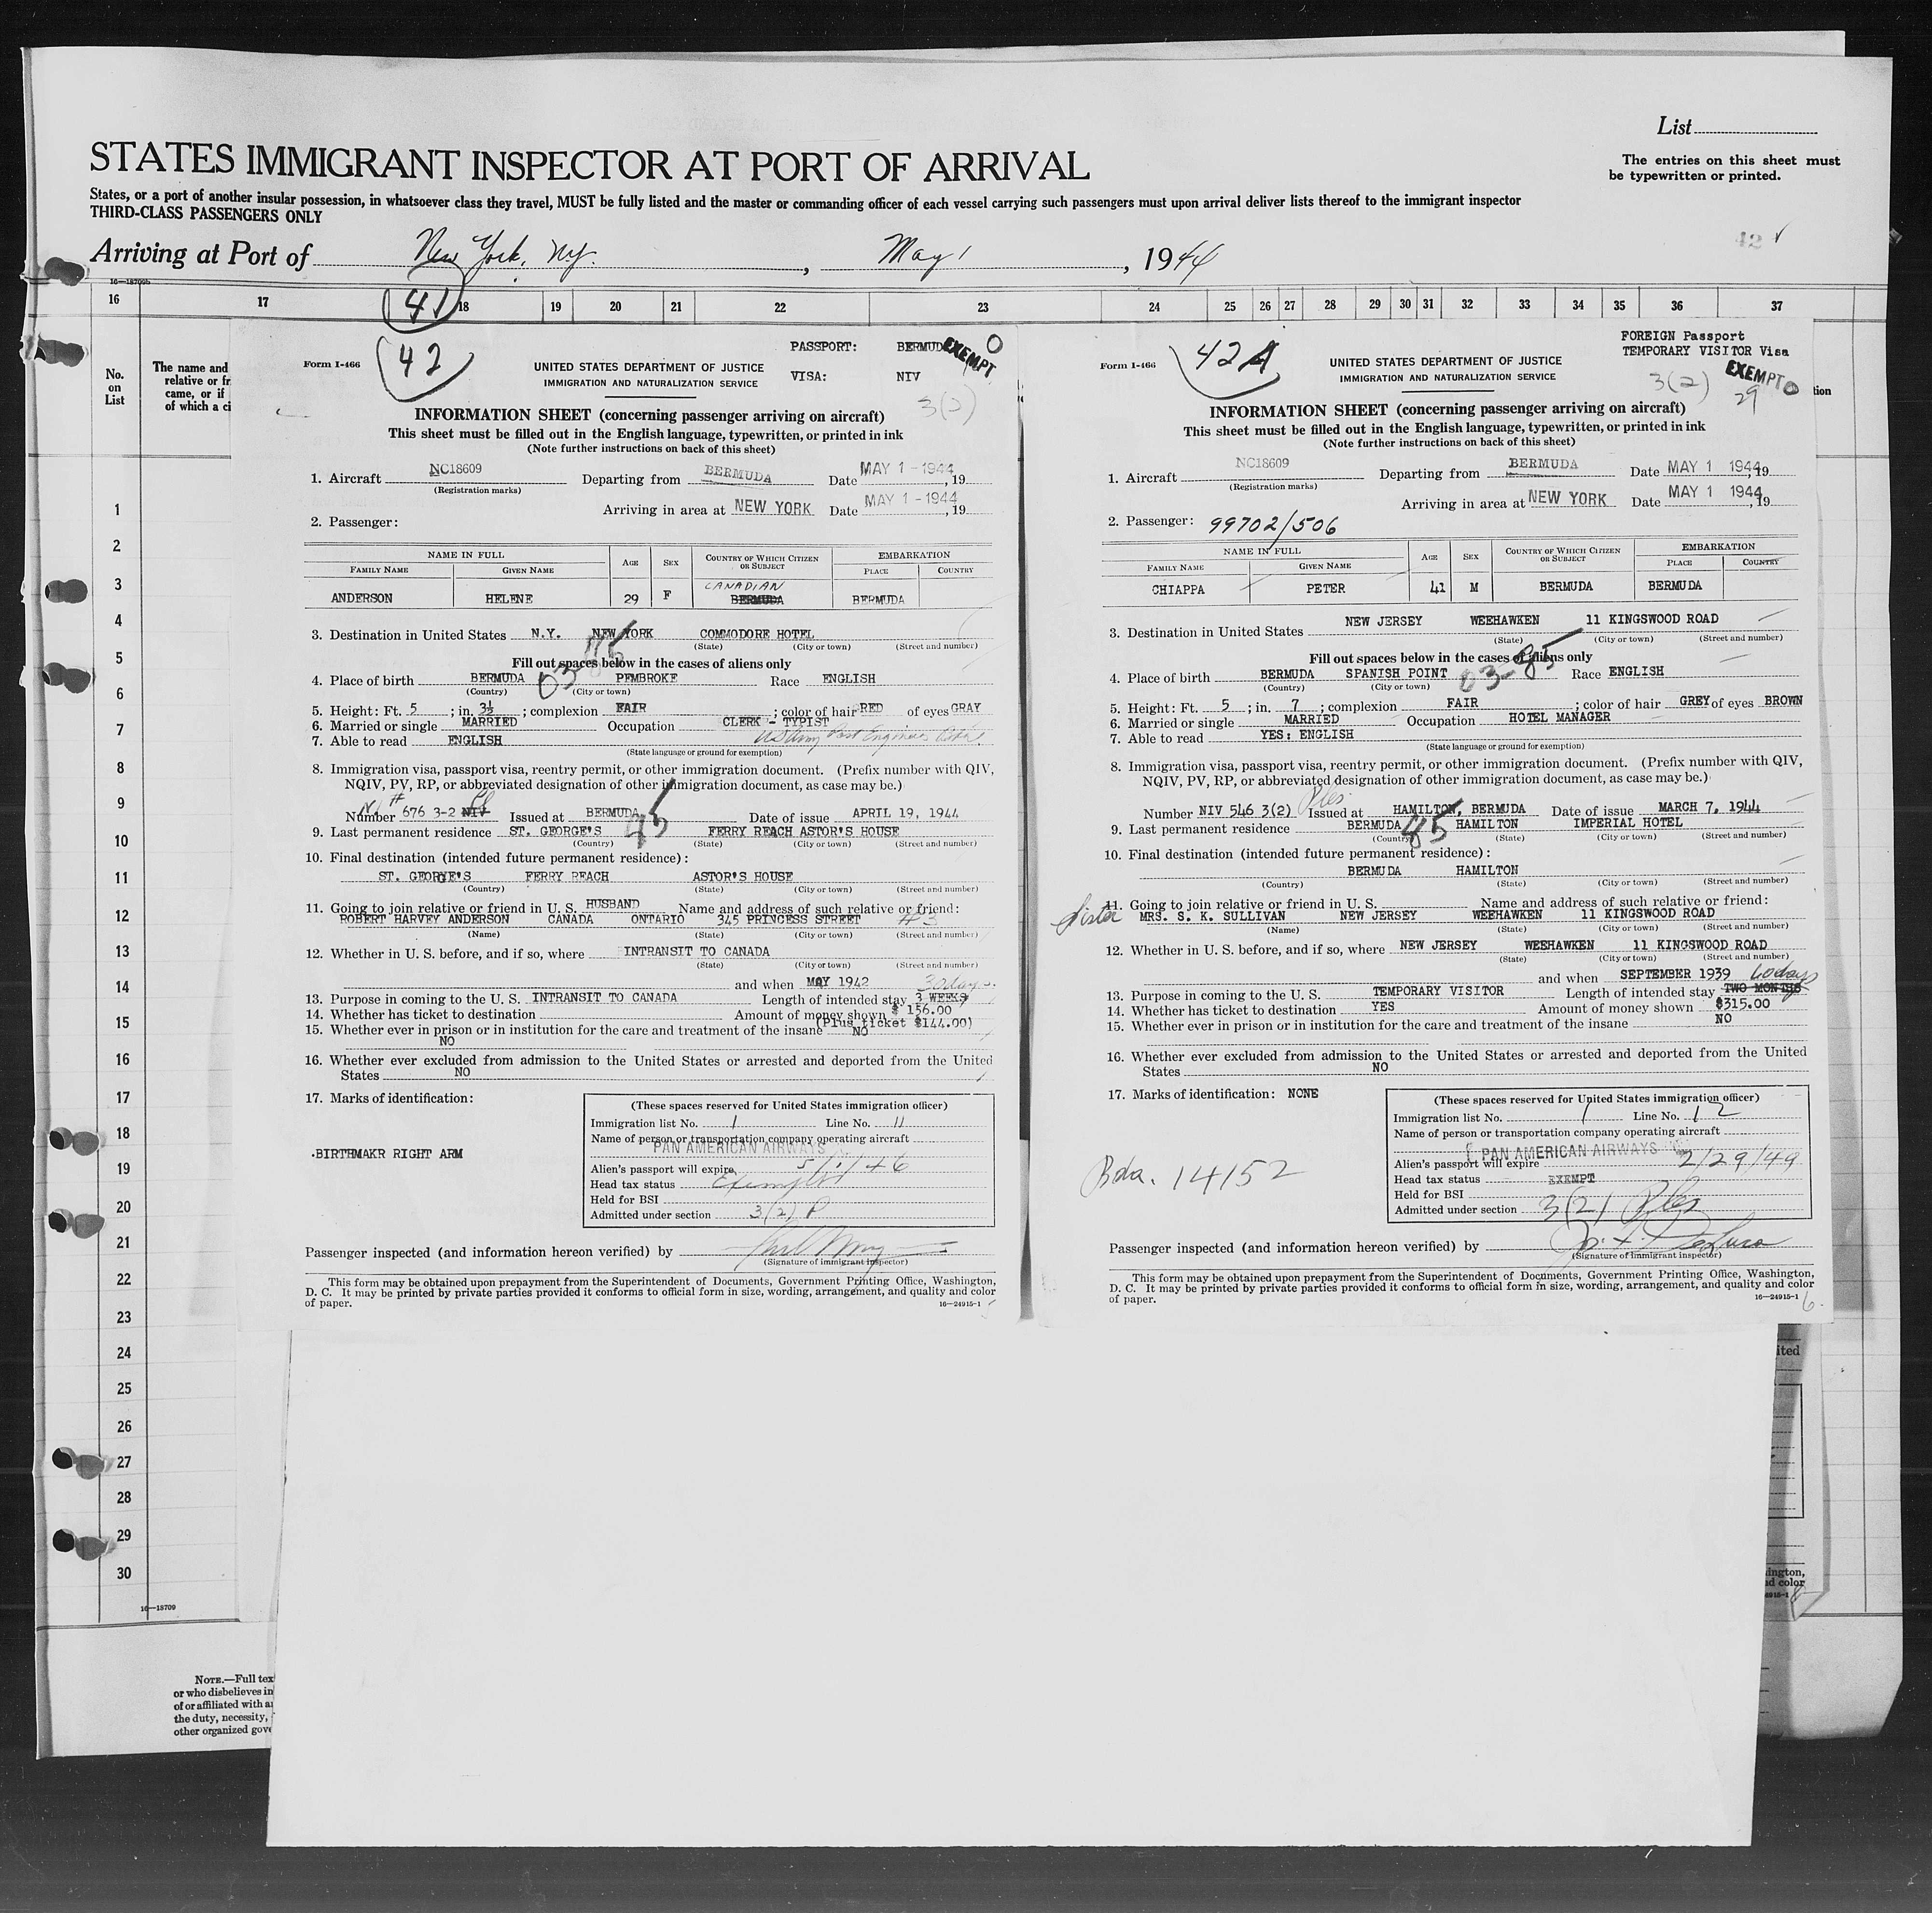 List
The entries on this sheet must
be typewritten or printed.
STATES IMMIGRANT INSPECTOR AT PORT OF ARRIVAL
States, or a port of another insular possession, in whatsoever class they travel, MUST be fully listed and the master or commanding officer of each vessel carrying such passengers must upon arrival deliver lists thereof to the immigrant inspector
THIRD-CLASS PASSENGERS ONLY
42 ✓
Arriving at Port of New York, N.Y. , May 1 , 1944
16—18709b
16 17 18 19 20 21 22 23 24 25 26 27 28 29 30 31 32 33 34 35 36 37
41
No.
on
List
The name and
relative or fr
came, or if
of which a ci
1
2
3
4
5
6
7
8
9
10
11
12
13
14
15
16
17
18
19
20
21
22
23
24
25
26
27
28
29
30
16—18709
NOTE.—Full tex
or who disbelieves in
of or affiliated with a
the duty, necessity,
other organized gove
Form I-466
42
PASSPORT: BERMUDA
VISA: NIV
EXEMPT O
3(2)
UNITED STATES DEPARTMENT OF JUSTICE
IMMIGRATION AND NATURALIZATION SERVICE
INFORMATION SHEET (concerning passenger arriving on aircraft)
This sheet must be filled out in the English language, typewritten, or printed in ink
(Note further instructions on back of this sheet)
1. Aircraft NC18609 Departing from BERMUDA Date MAY 1 - 1944, 19
(Registration marks)
Arriving in area at NEW YORK Date MAY 1 - 1944, 19
2. Passenger:
NAME IN FULL AGE SEX COUNTRY OF WHICH CITIZEN OR SUBJECT EMBARKATION
FAMILY NAME GIVEN NAME PLACE COUNTRY
CANADIAN
ANDERSON HELENE 29 F BERMUDA BERMUDA
3. Destination in United States N.Y. NEW YORK COMMODORE HOTEL
(State) (City or town) (Street and number)
03-85
Fill out spaces below in the cases of aliens only
4. Place of birth BERMUDA PEMBROKE Race ENGLISH
(Country) (City or town)
5. Height: Ft. 5 ; in. 3½ ; complexion FAIR ; color of hair RED of eyes GRAY
6. Married or single MARRIED Occupation CLERK - TYPIST
US Army Post Engineer
7. Able to read ENGLISH
(State language or ground for exemption)
8. Immigration visa, passport visa, reentry permit, or other immigration document. (Prefix number with QIV,
NQIV, PV, RP, or abbreviated designation of other immigration document, as case may be.)
Number # 676 3-2 NIV Issued at BERMUDA Date of issue APRIL 19, 1944
45
9. Last permanent residence ST. GEORGE'S FERRY REACH ASTOR'S HOUSE
(Country) (State) (City or town) (Street and number)
10. Final destination (intended future permanent residence):
ST. GEORGE'S FERRY REACH ASTOR'S HOUSE
(Country) (State) (City or town) (Street and number)
11. Going to join relative or friend in U. S. HUSBAND Name and address of such relative or friend:
ROBERT HARVEY ANDERSON CANADA ONTARIO 345 PRINCESS STREET #3
(Name) (State) (City or town) (Street and number)
12. Whether in U. S. before, and if so, where INTRANSIT TO CANADA
(State) (City or town) (Street and number)
and when MAY 1942 30 days.
13. Purpose in coming to the U. S. INTRANSIT TO CANADA Length of intended stay 3 WEEKS
14. Whether has ticket to destination Amount of money shown $ 156.00
(Plus ticket $144.00)
15. Whether ever in prison or in institution for the care and treatment of the insane NO
NO
16. Whether ever excluded from admission to the United States or arrested and deported from the United
States NO
17. Marks of identification:
BIRTHMAKR RIGHT ARM
(These spaces reserved for United States immigration officer)
Immigration list No. 1 Line No. 11
Name of person or transportation company operating aircraft
PAN AMERICAN AIRWAYS
Alien's passport will expire 5/1/46
Head tax status Exempt
Held for BSI
Admitted under section 3(2) P
Passenger inspected (and information hereon verified) by
(Signature of immigrant inspector)
This form may be obtained upon prepayment from the Superintendent of Documents, Government Printing Office, Washington,
D. C. It may be printed by private parties provided it conforms to official form in size, wording, arrangement, and quality and color
of paper.
16—24915-1
FOREIGN Passport
TEMPORARY VISITOR Visa
Form I-466
42A
EXEMPT O
3(2) 29
UNITED STATES DEPARTMENT OF JUSTICE
IMMIGRATION AND NATURALIZATION SERVICE
INFORMATION SHEET (concerning passenger arriving on aircraft)
This sheet must be filled out in the English language, typewritten, or printed in ink
(Note further instructions on back of this sheet)
1. Aircraft NC18609 Departing from BERMUDA Date MAY 1 1944, 19
(Registration marks)
Arriving in area at NEW YORK Date MAY 1 1944, 19
2. Passenger: 99702/506
NAME IN FULL AGE SEX COUNTRY OF WHICH CITIZEN OR SUBJECT EMBARKATION
FAMILY NAME GIVEN NAME PLACE COUNTRY
CHIAPPA PETER 41 M BERMUDA BERMUDA
3. Destination in United States NEW JERSEY WEEHAWKEN 11 KINGSWOOD ROAD
(State) (City or town) (Street and number)
03-85
Fill out spaces below in the cases of aliens only
4. Place of birth BERMUDA SPANISH POINT Race ENGLISH
(Country) (City or town)
5. Height: Ft. 5 ; in. 7 ; complexion FAIR ; color of hair GREY of eyes BROWN
6. Married or single MARRIED Occupation HOTEL MANAGER
7. Able to read YES: ENGLISH
(State language or ground for exemption)
8. Immigration visa, passport visa, reentry permit, or other immigration document. (Prefix number with QIV,
NQIV, PV, RP, or abbreviated designation of other immigration document, as case may be.)
Number NIV 546 3(2) Issued at HAMILTON, BERMUDA Date of issue MARCH 7, 1944
45
9. Last permanent residence BERMUDA HAMILTON IMPERIAL HOTEL
(Country) (State) (City or town) (Street and number)
10. Final destination (intended future permanent residence):
BERMUDA HAMILTON
(Country) (State) (City or town) (Street and number)
11. Going to join relative or friend in U. S. Name and address of such relative or friend:
Sister MRS. S. K. SULLIVAN NEW JERSEY WEEHAWKEN 11 KINGSWOOD ROAD
(Name) (State) (City or town) (Street and number)
12. Whether in U. S. before, and if so, where NEW JERSEY WEEHAWKEN 11 KINGSWOOD ROAD
(State) (City or town) (Street and number)
and when SEPTEMBER 1939 60 days
13. Purpose in coming to the U. S. TEMPORARY VISITOR Length of intended stay TWO MONTHS
14. Whether has ticket to destination YES Amount of money shown $315.00
15. Whether ever in prison or in institution for the care and treatment of the insane NO
16. Whether ever excluded from admission to the United States or arrested and deported from the United
States NO
17. Marks of identification: NONE
Bda. 14152
(These spaces reserved for United States immigration officer)
Immigration list No. 1 Line No. 12
Name of person or transportation company operating aircraft
PAN AMERICAN AIRWAYS
Alien's passport will expire 2/29/49
Head tax status EXEMPT
Held for BSI
Admitted under section 3(2)
Passenger inspected (and information hereon verified) by
(Signature of immigrant inspector)
This form may be obtained upon prepayment from the Superintendent of Documents, Government Printing Office, Washington,
D. C. It may be printed by private parties provided it conforms to official form in size, wording, arrangement, and quality and color
of paper.
16—24915-1
6.
tion
ited
ington,
nd color
4915-1